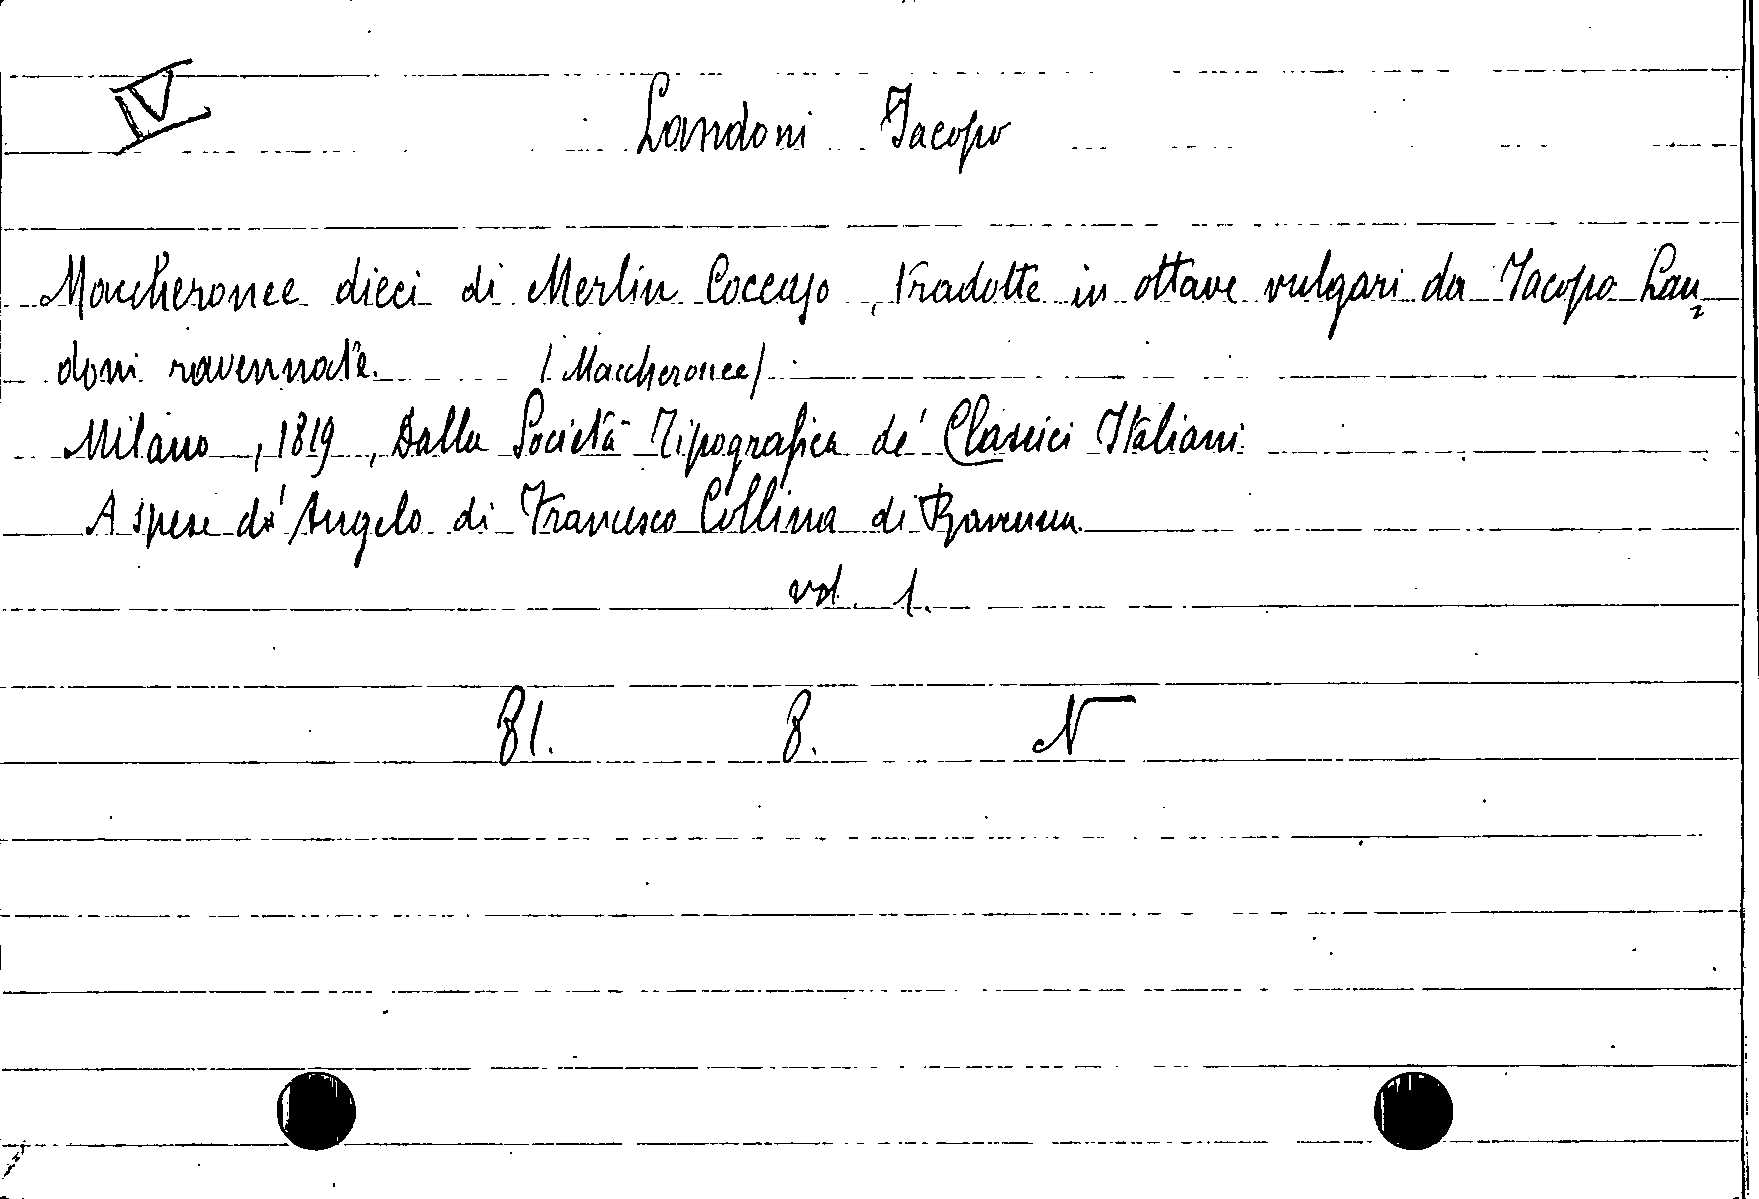 IV
Landoni Jacopo
Maccheronee dieci di Merlin Coccajo, tradotte in ottave vulgari da Jacopo Lan=
doni ravennate. (Maccheronee)
Milano, 1819, Dalla Società Tipografica de' Classici Italiani
A spese di Angelo di Francesco Collina di Ravenna.
vol. 1.
81. 8. N